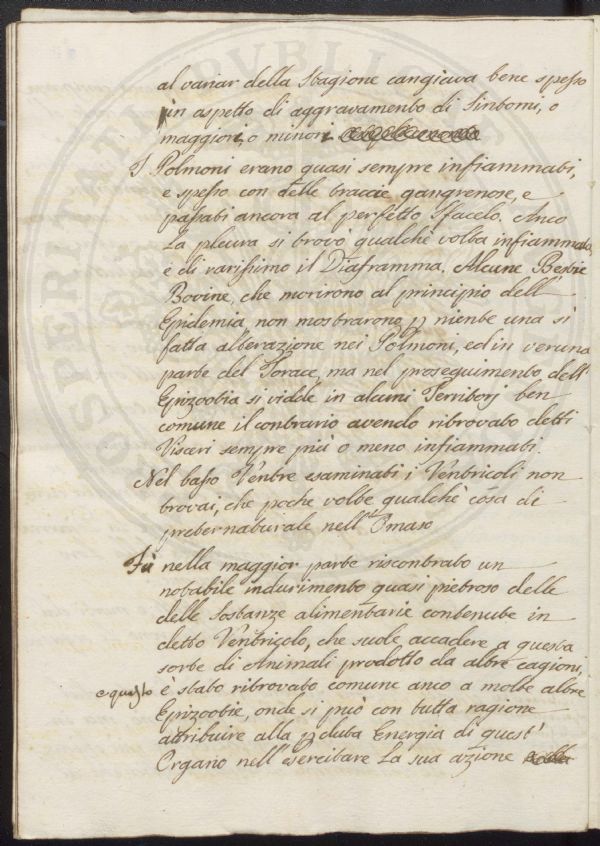 al variar della Stagione cangiava bene spesso
in aspetto di aggravamento di Sintomi, o
maggiori, o minori
I Polmoni erano quasi sempre infiammati,
e spesso con delle braccie gangrenose, e
passati ancora al perfetto Sfacelo. Anco
La pleura si trovò qualche volta infiammata,
e di rarissimo il Diaframma. Alcune Bestie
Bovine, che morirono al principio dell'
Epidemia, non mostrarono p niente una si
fatta alterazione nei Polmoni, ed in veruna
parte del Torace, ma nel proseguimento dell'
Epizootia si vidde in alcuni Territorj ben
comune il contrario avendo ritrovato detti
Visceri sempre più o meno infiammati.
Nel basso Ventre esaminati i Ventricoli non
trovai, che poche volte qualche cosa di
preternaturale nell'Omaso
Fù nella maggior parte riscontrato un
notabile indurimento quasi pietroso delle
delle Sostanze alimentarie contenute in
detto Ventricolo, che suole accadere a questa
sorte di Animali prodotto da altre cagioni,
e questo è stato ritrovato comune anco a molte altre
Epizootie, onde si può con tutta ragione
attribuire alla pduta Energia di quest'
Organo nell'esercitare La sua azione
PROSPERITATI PVBLICAE